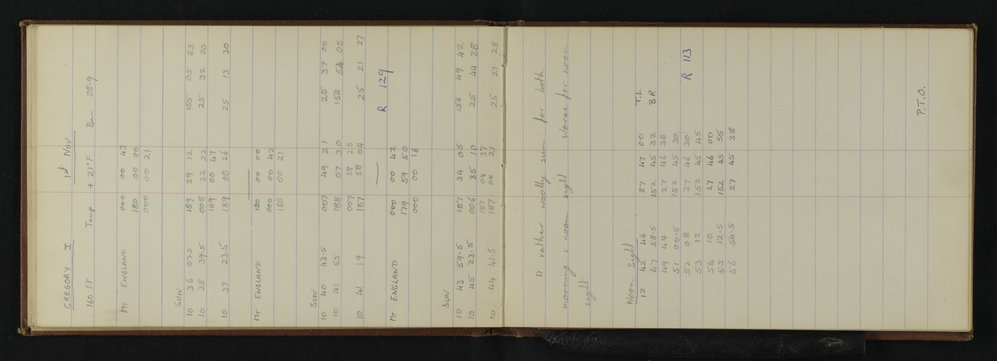 GREGORY I 1st Nov
160 ft Temp + 21°F Bar 28.9
Mt ENGLAND 000 00 43
180 00 00
000 00 21
SUN
10 36 07.5 189 39 12 155 05 23
10 38 39.5 008 22 22 25 32 20
189 00 47
10 37 23.5 189 00 26 25 13 30
Mt ENGLAND 180 00 00
000 00 42
180 00 21
SUN
10 40 43.5 007 49 21 25 37 00
10 41 55 188 07 30 154 54 05
007 58 25
10 41 19 187 58 04 25 21 27
R 129
Mt ENGLAND 000 00 42
179 59 50
000 00 16
SUN
10 43 59.5 187 34 05 154 49 42
10 45 23.5 006 35 10 25 44 38
187 04 37
10 44 41.5 187 04 21 25 27 28
A rather woolly sun for both
morning & noon sight. Worse for noon
sight
Noon Sight
12 42 44 27 47 00 T.L.
47 58.5 152 45 32 B R
49 49 27 46 38
51 00.5 152 45 30
52 08 27 46 30
53 12 152 45 45
54 10 27 46 00 R 113
55 12.5 152 45 55
56 54.5 27 45 38
P.T.O.